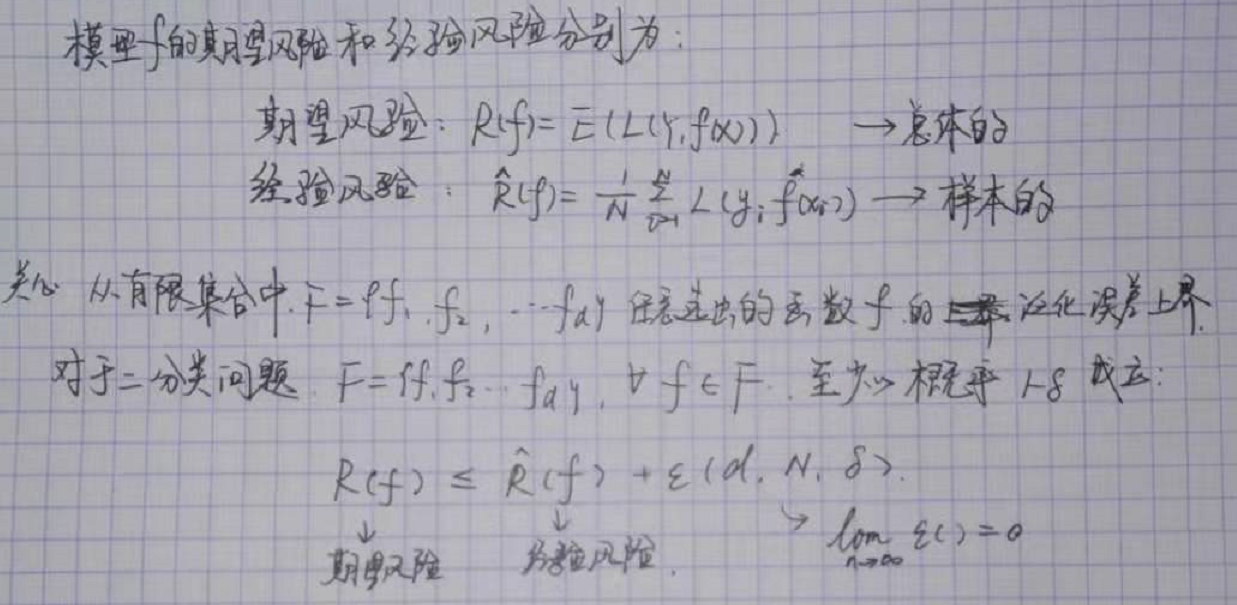 模型f的期望风险和经验风险分别为:
期望风险: R(f)=E(L(Y,f(x))) →总体的
经验风险: R̂(f)= 1/N Σ_{i=1}^{N} L(y_i f(x_i)) → 样本的
关心 从有限集合中 F={f_1, f_2, …f_d} 任意选出的函数f的 泛化误差上界.
对于二分类问题. F={f_1 f_2 … f_d}, ∀ f∈F. 至少以概率1-δ成立:
R(f) ≤ R̂(f) + ε(d, N, δ).
↓ ↓ ↘ lim_{n→∞} ε( )=0
期望风险 经验风险.